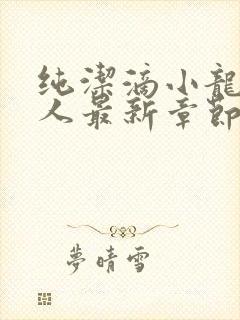 纯潔滴小龍
人最新章節
夢晴雪